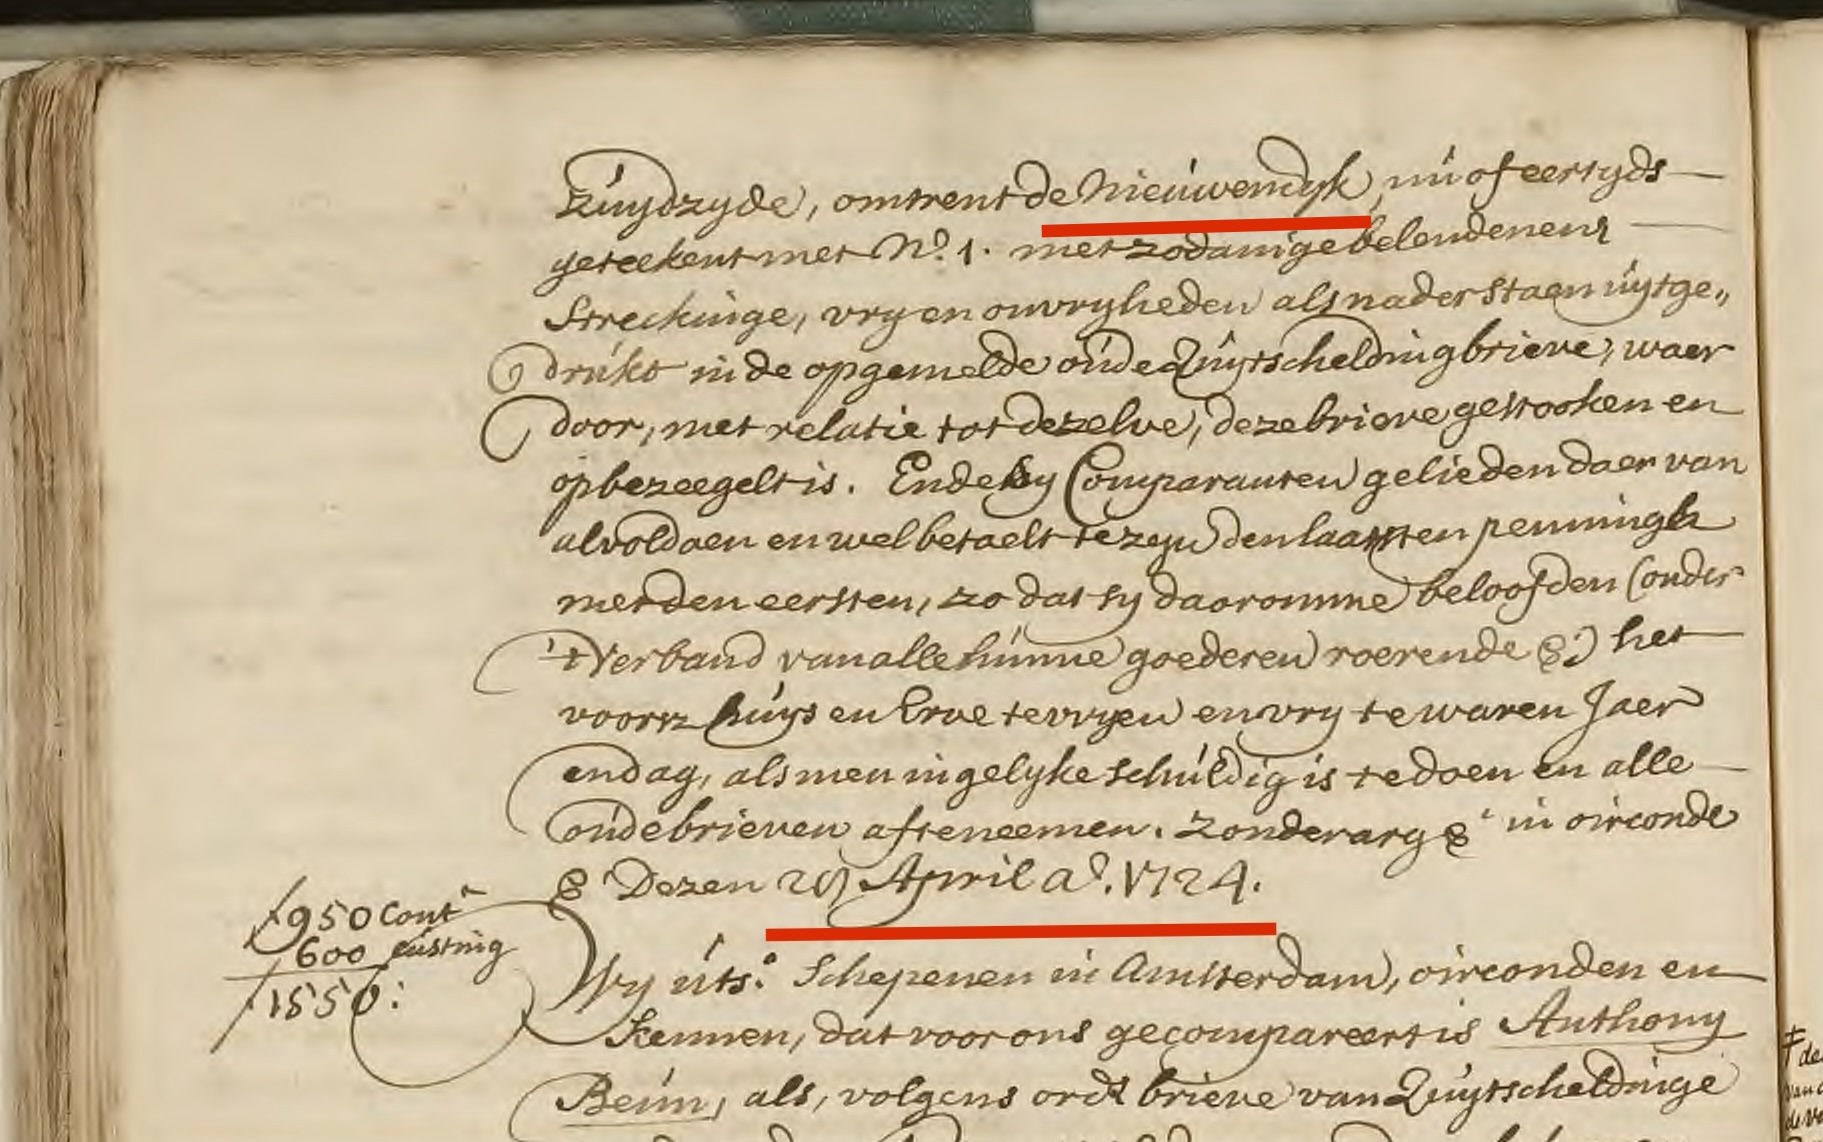 Zuydzyde, omtrent de Nieuwendyk, nu of eertyds
geteekent met No. 1. met zodanige belendenen
Streckinge, vry en onvryheden als nader staen uytge„
drukt in de opgemelde oude Quytscheldingbrieve, waer
door, met relatie tot dezelve, deze brieve gestooken en
opbezeegelt is. Ende sy Comparanten gelieden daer van
al voldaen en wel betaelt te zyn den laatsten penningh
met den eersten, zo dat sy daeromme beloofden (onder
't Verband van alle hunne goederen roerende &) het
voorsz huys en Erve te vryen en vry te waren Jaer
en dag, als men ingelyke schuldig is te doen en alle
oude brieven af te neemen. Zonder arg & in oirconde
& Dezen 29 April ao. 1724.
950 Cont
600 custing
1550:
Wy uts. Schepenen in Amsterdam, oirconden en
kennen, dat voor ons gecompareert is Anthony
Beun, als, volgens ordt brieve van Quytscheldinge
de
van
de